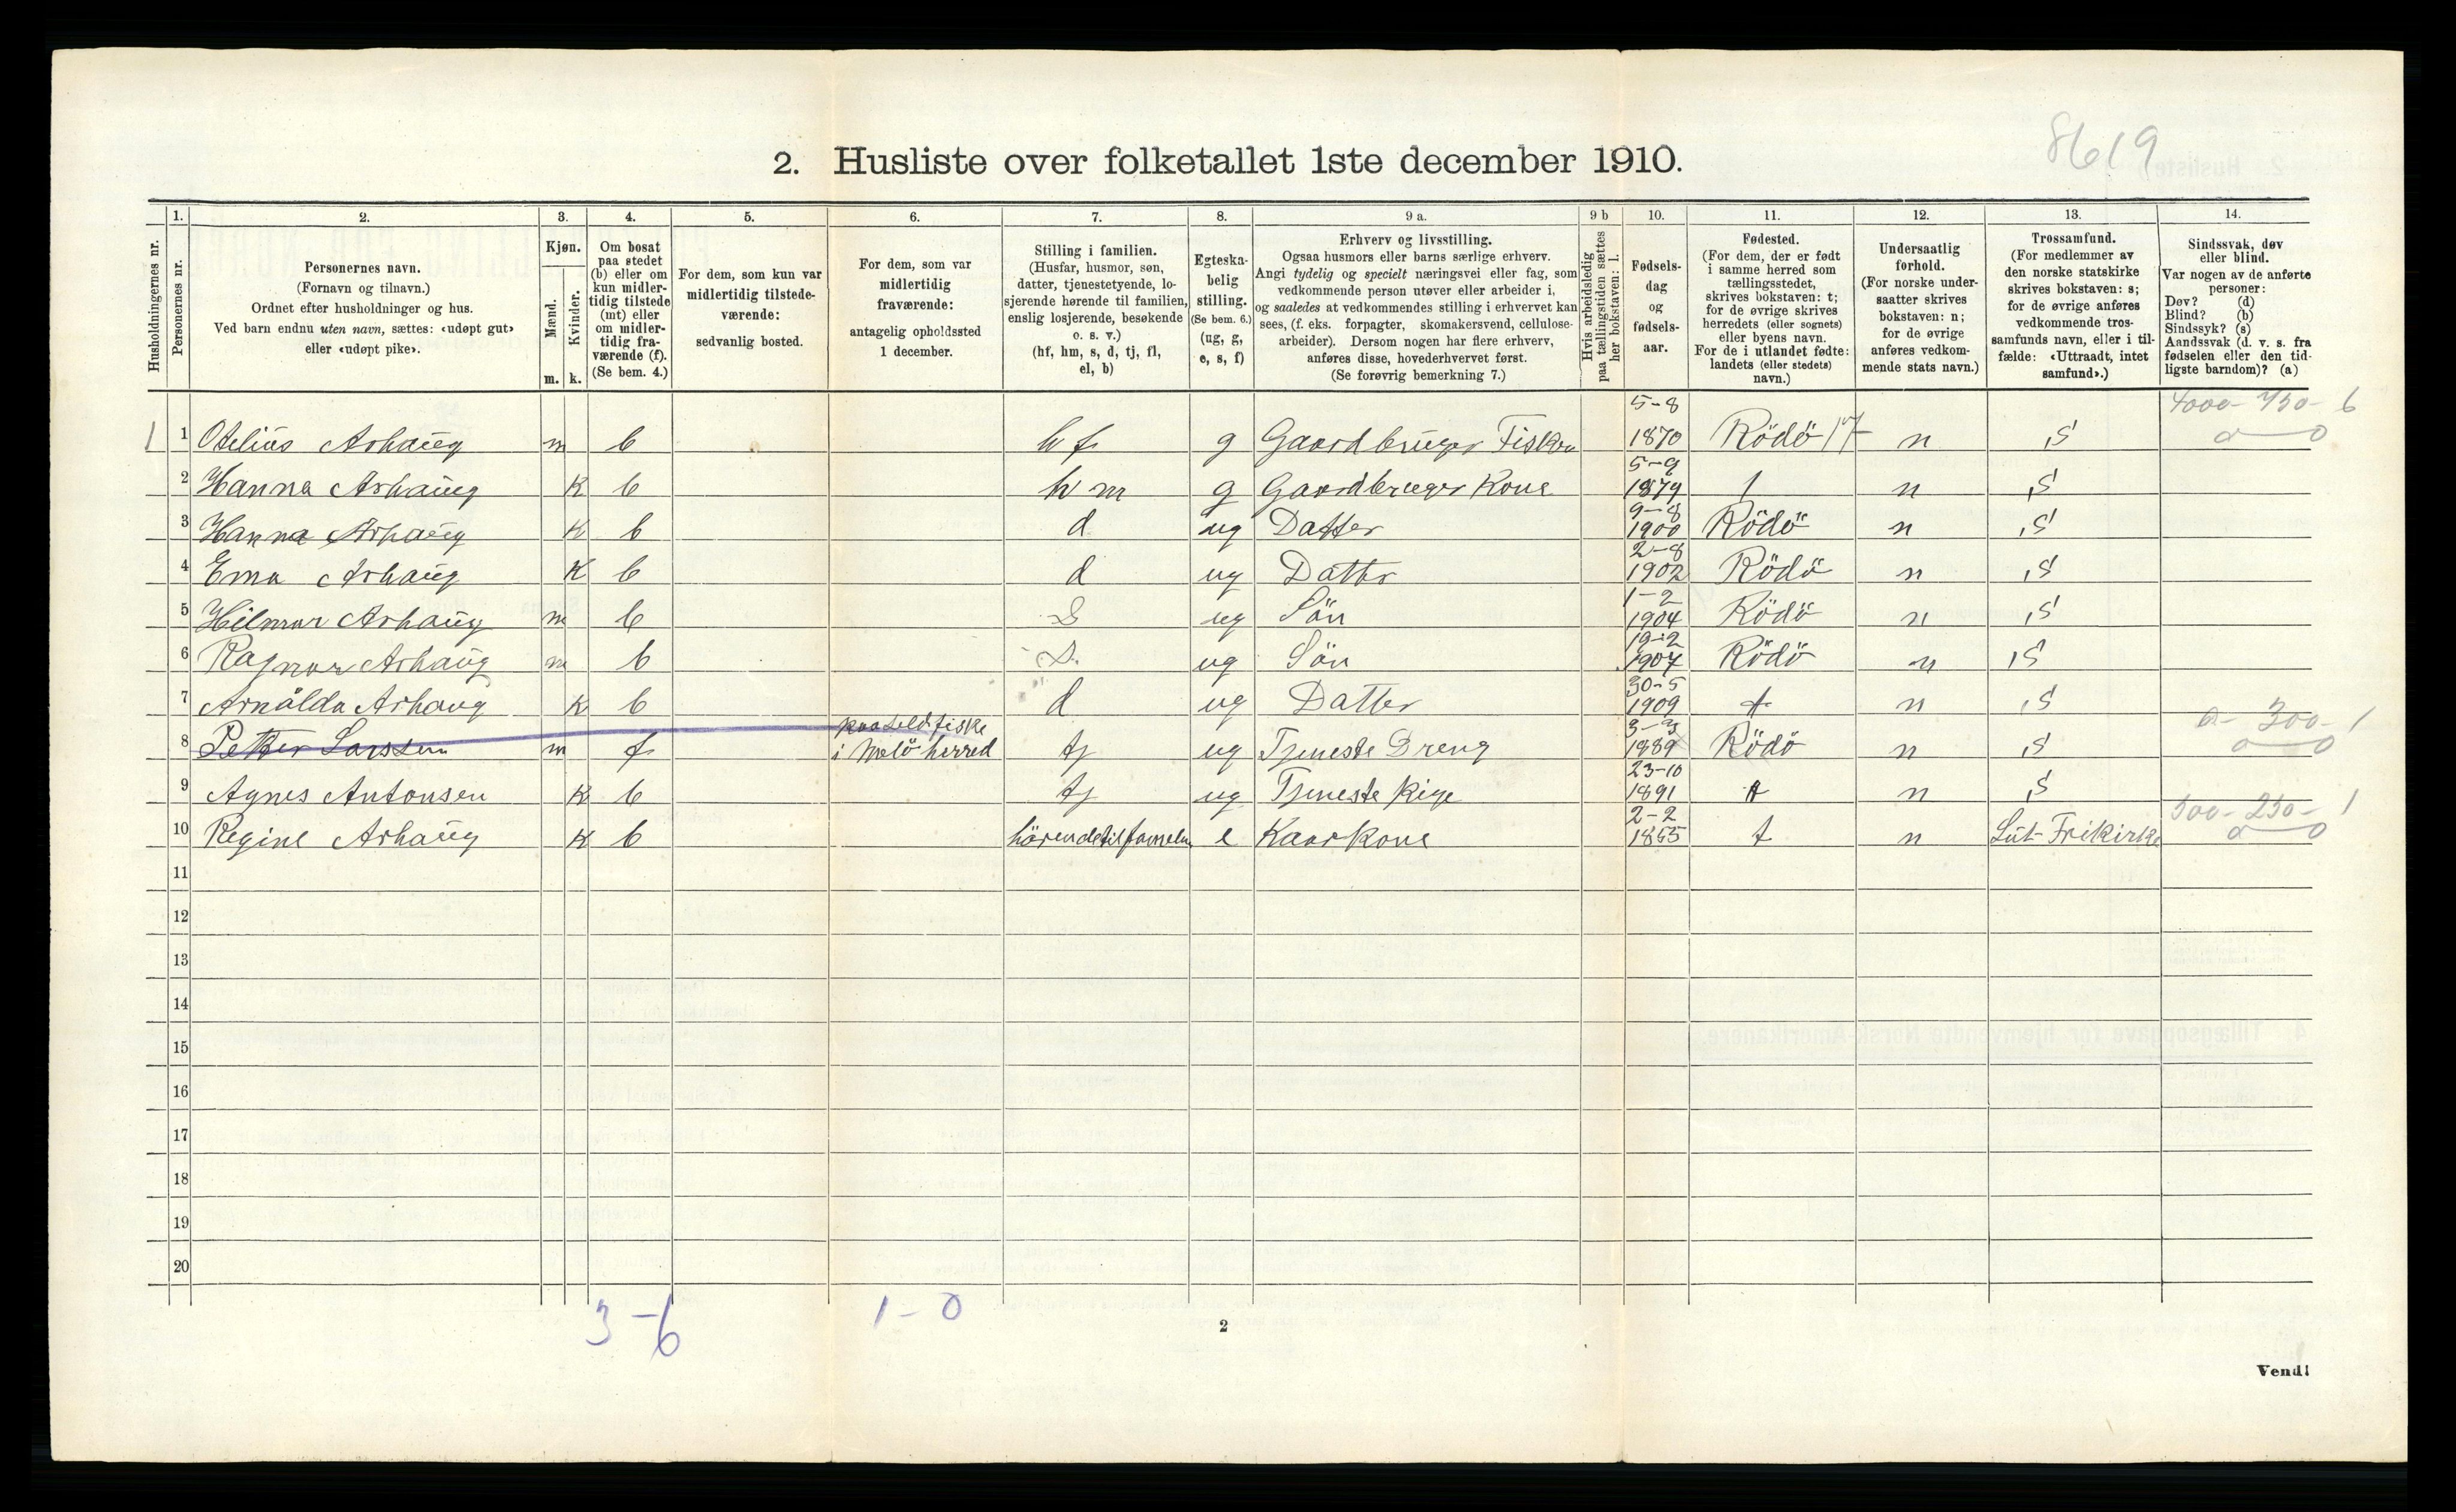 8619
2. Husliste over folketallet 1ste december 1910.
Husholdningernes nr.
1. Personernes nr.
2. Personernes navn.
(Fornavn og tilnavn.)
Ordnet efter husholdninger og hus.
Ved barn endnu uten navn, sættes: «udøpt gut»
eller «udøpt pike».
3. Kjøn.
Mænd. Kvinder.
m. k.
4. Om bosat
paa stedet
(b) eller om
kun midler-
tidig tilstede
(mt) eller
om midler-
tidig fra-
værende (f).
(Se bem. 4.)
5. For dem, som kun var
midlertidig tilstede-
værende:
sedvanlig bosted.
6. For dem, som var
midlertidig
fraværende:
antagelig opholdssted
1 december.
7. Stilling i familien.
(Husfar, husmor, søn,
datter, tjenestetyende, lo-
sjerende hørende til familien,
enslig losjerende, besøkende
o. s. v.)
(hf, hm, s, d, tj, fl,
el, b)
8. Egteska-
belig
stilling.
(Se bem. 6.)
(ug, g,
e, s, f)
9 a. Erhverv og livsstilling.
Ogsaa husmors eller barns særlige erhverv.
Angi tydelig og specielt næringsvei eller fag, som
vedkommende person utøver eller arbeider i,
og saaledes at vedkommendes stilling i erhvervet kan
sees, (f. eks. forpagter, skomakersvend, cellulose-
arbeider). Dersom nogen har flere erhverv,
anføres disse, hovederhvervet først.
(Se forøvrig bemerkning 7.)
9 b Hvis arbeidsledig
paa tællingstiden sættes
her bokstaven: l.
10. Fødsels-
dag
og
fødsels-
aar.
11. Fødested.
(For dem, der er født
i samme herred som
tællingsstedet,
skrives bokstaven: t;
for de øvrige skrives
herredets (eller sognets)
eller byens navn.
For de i utlandet fødte:
landets (eller stedets)
navn.)
12. Undersaatlig
forhold.
(For norske under-
saatter skrives
bokstaven: n;
for de øvrige
anføres vedkom-
mende stats navn.)
13. Trossamfund.
(For medlemmer av
den norske statskirke
skrives bokstaven: s;
for de øvrige anføres
vedkommende tros-
samfunds navn, eller i til-
fælde: «Uttraadt, intet
samfund».)
14. Sindssvak, døv
eller blind.
Var nogen av de anførte
personer:
Døv? (d)
Blind? (b)
Sindssyk? (s)
Aandssvak (d. v. s. fra
fødselen eller den tid-
ligste barndom)? (a)
5-8 4000-750-6
1 1 Otelius Arhaug m b hf g Gaardbruger Fisker 1870 Rödö n S
5-9
2 Hanna Arhaug K b hm g Gaardbruger Kone 1879 n S
9-8
3 Hanna Arhaug K b d ug Datter 1900 Rödö n S
2-8
4 Ema Arhaug K b d ug Datter 1902 Rödö n S
1-2
5 Hilmar Arhaug m b S ug Sön 1904 Rödö n S
19-2
6 Ragnar Arhaug m b S ug Sön 1907 Rödö n S
30-5
7 Arnålda Arhaug K b d ug Datter 1909 t n S
fiske 3-3 0-300-1
8 Petter Larssen m f i Melö herred tj ug Tjeneste Dreng 1889 Rödö n S
23-10
9 Agnes Antonsen K b tj ug Tjeneste Pige 1891 t n S
2-2 500-250-1
10 Regine Arhaug K b hörende til familien e Kaarkone 1855 t n Lut-Frikirke
11
12
13
14
15
16
17
18
19
20
3-6 1-0
2
Vend!